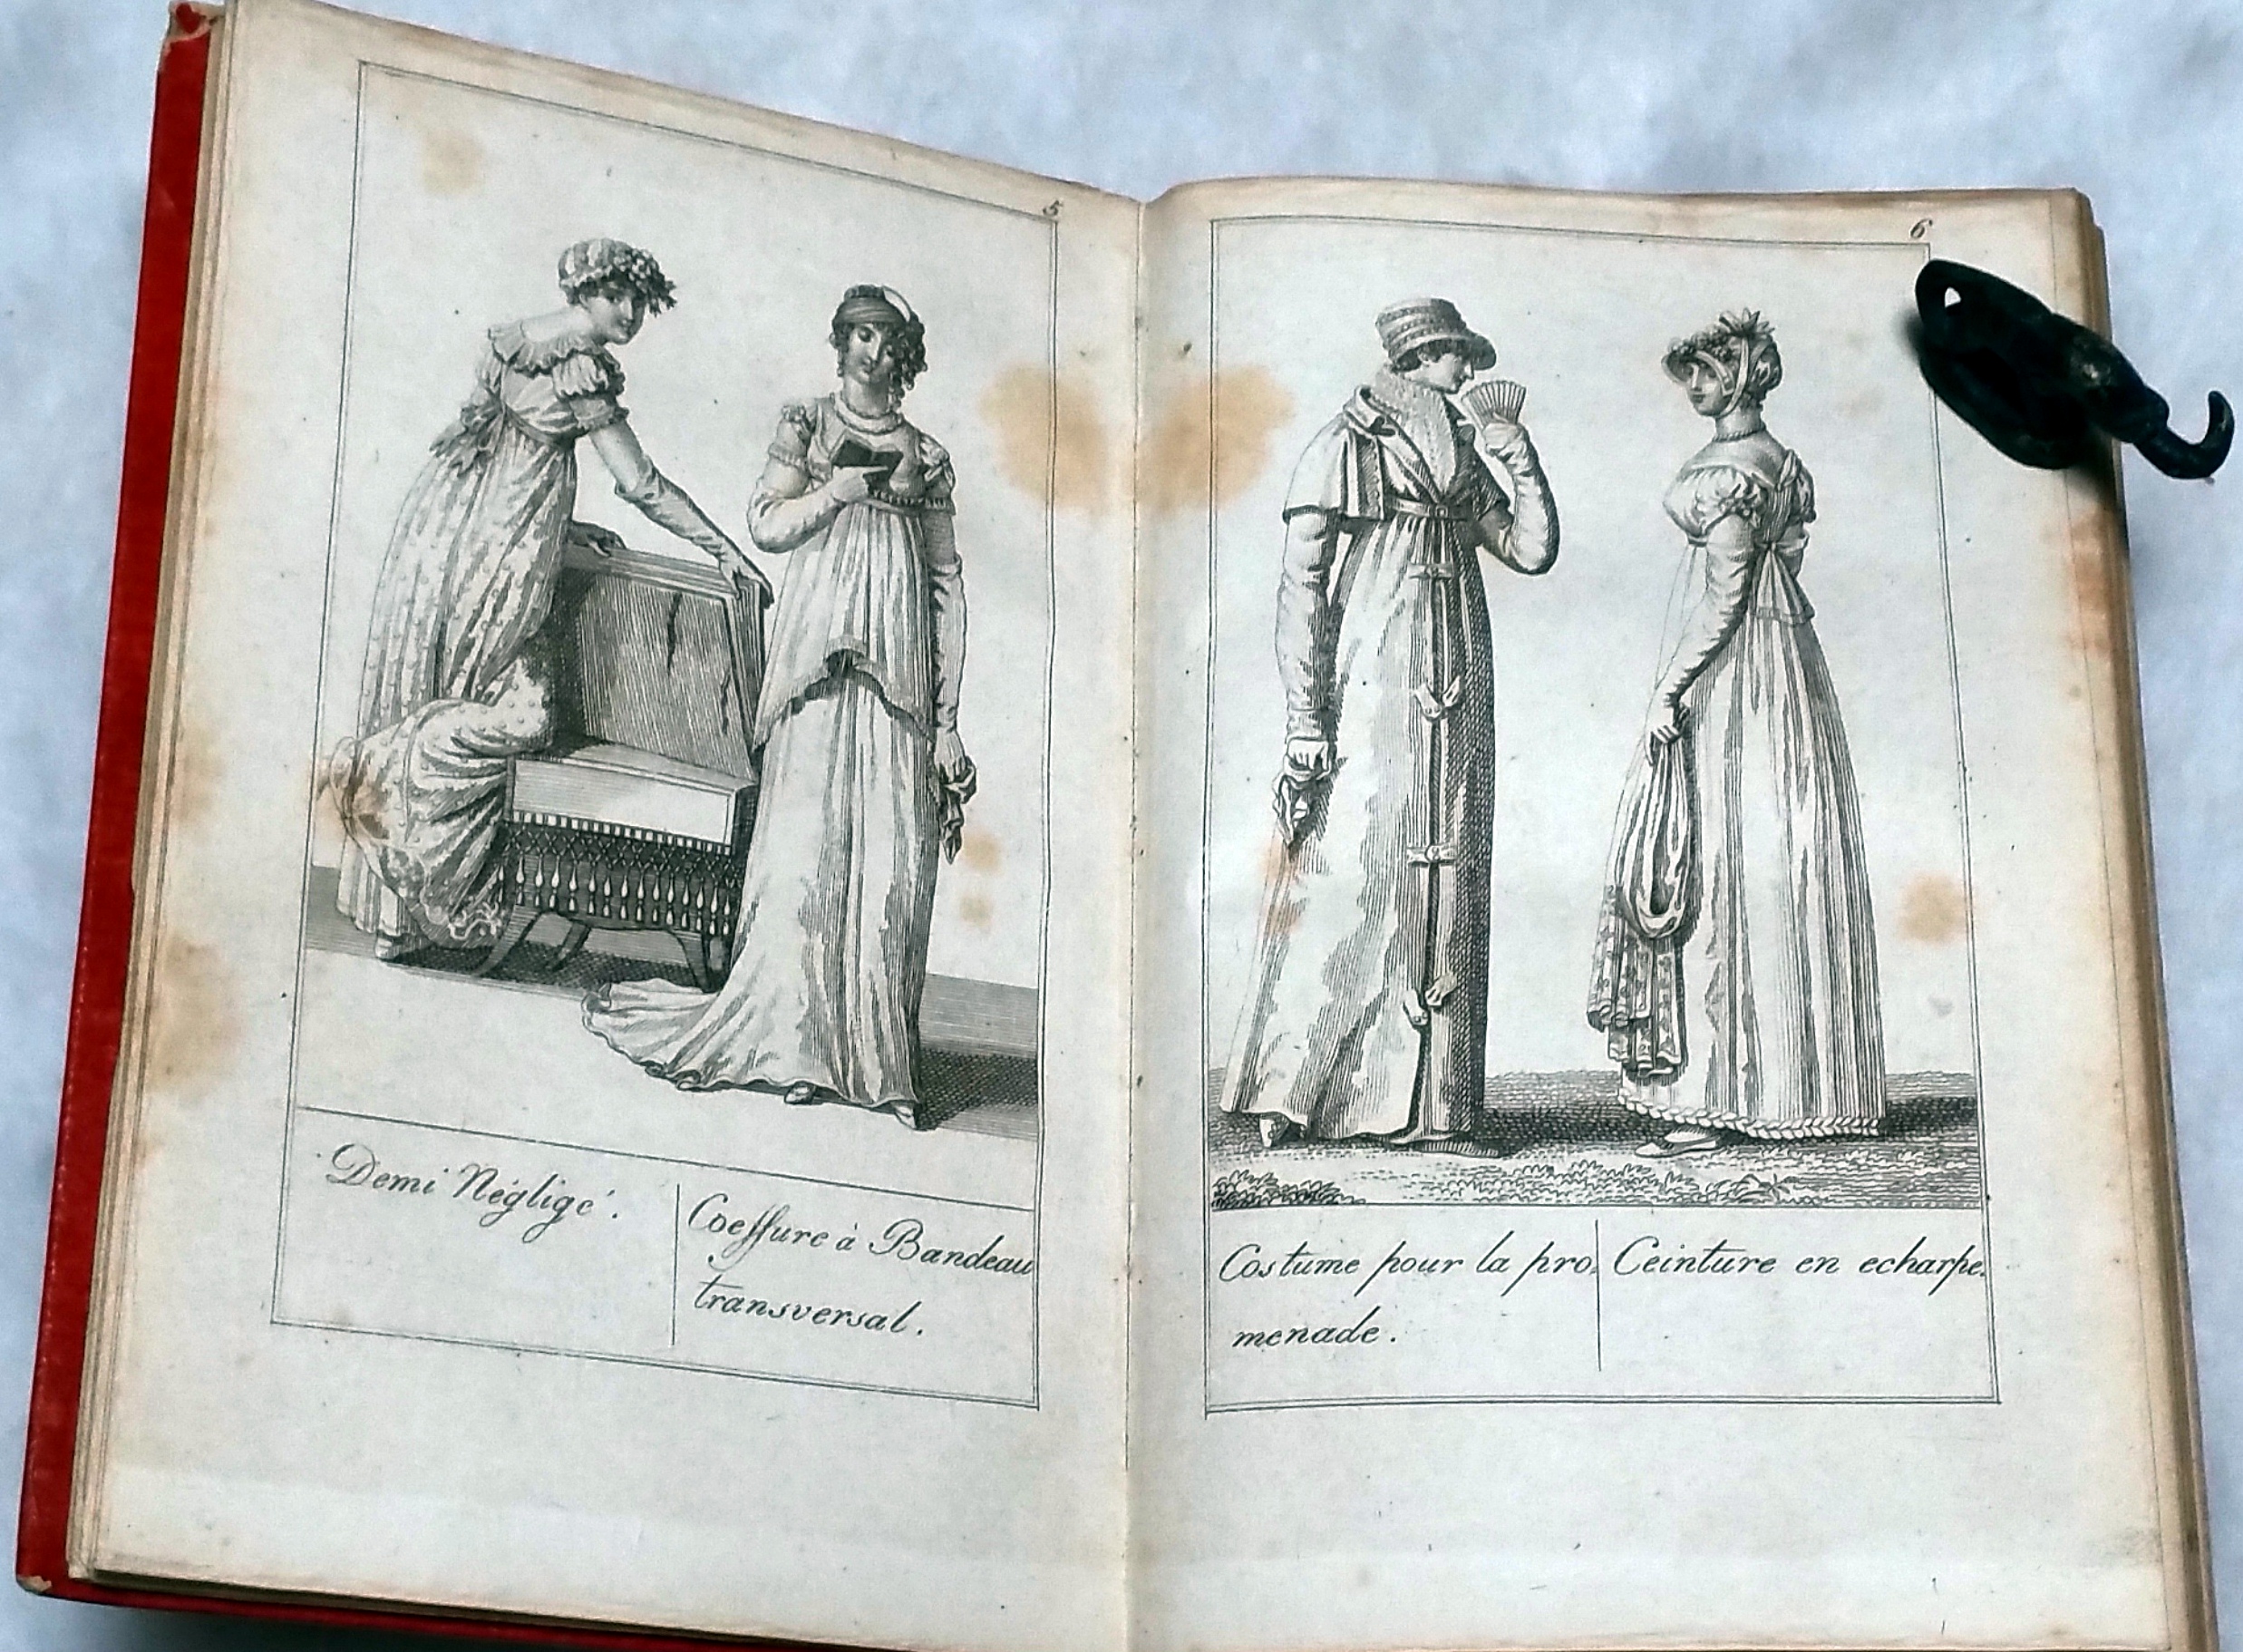 5
Demi Négligé.
Coeffure à Bandeau
transversal.
6
Costume pour la pro,
menade.
Ceinture en echarpe.